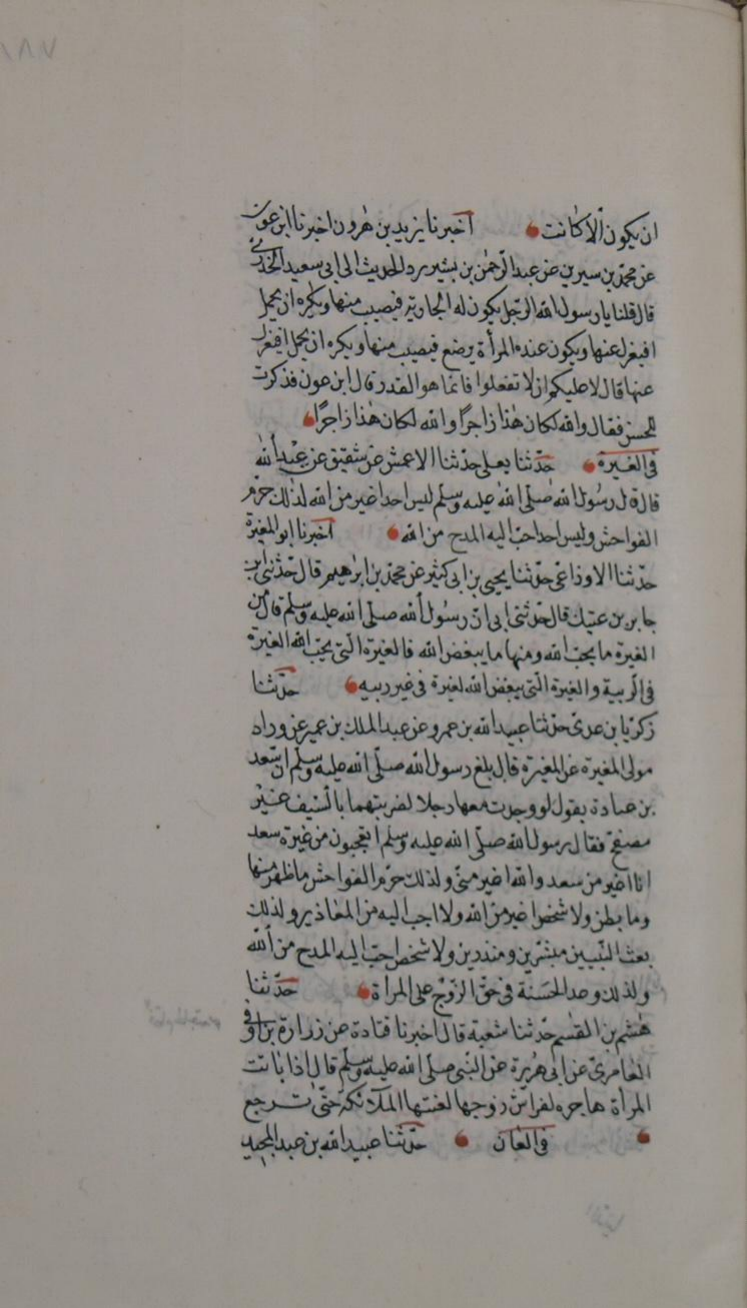 ان يكون الا كانت اخبرنا يزيد بن هٰرون اخبرنا ابن عون
عن محمد بن سيرين عن عبد الرحمٰن بن بشير يرد الحديث الى ابى سعيد الخدرى
قال قلنا يا رسول الله الرجل يكون له الجارية فيصيب منها ويكره ان يحمل
افيعزل عنها ويكون عنده المرأة يرضع فيصيب منها ويكره ان يحمل افيعزل
عنها قال لا عليكم ان لا تفعلوا فانما هو القدر قال ابن عون فذكرت
للحسن فقال والله لكان هٰذا زاجرًا والله لكان هٰذا زاجرًا
فى الغيرة حدّثنا يعلى حدثنا الاعمش عن شقيق عن عبد الله
قال قال رسول الله صلى الله عليه وسلم ليس احد اغير من الله لذٰلك حرم
الفواحش وليس احد احبّ اليه المدح من الله اخبرنا ابو المغيرة
حدثنا الاوزاعى حدّثنا يحيى بن ابى كثير عن محمد بن ابرٰهيم قال حدّثنى ابن
جابر بن عتيك قال حدّثنى ابى انّ رسول الله صلى الله عليه وسلم قال من
الغيرة ما يحبّ الله ومنها ما يبغض الله فالغيرة الّتى يحبّ الله الغيرة
فى الريبة والغيرة الّتى يبغض الله الغيرة فى غير ريبه حدّثنا
زكريا بن عدى حدّثنا عبيد الله بن عمرو عن عبد الملك بن عمير عن وراد
مولى المغيرة عن المغيرة قال بلغ رسول الله صلى الله عليه وسلم ان سعد
بن عبادة يقول لو وجدت معها رجلا لضربتهما بالسيف غير
مصفح فقال رسول الله صلى الله عليه وسلم اتعجبون من غيرة سعد
انا اغير من سعد والله اغير منى ولذلك حرم الفواحش ما ظهر منها
وما بطن ولا شخص اغير من الله ولا احب اليه من المعاذير ولذلك
بعث النّبيين مبشرين ومنذرين ولا شخص احبّ اليه المدح من الله
ولذلك وعد الجنة فى حقّ الزوج على المرأة حدّثنا
هٰشم بن القٰسم حدّثنا شعبة قال اخبرنا قتادة عن زرارة بن اوفى
العامرى عن ابى هريرة عن النّبى صلى الله عليه وسلّم قال اذا باتت
المرأة هاجره لفراش زوجها لعنتها الملائكة حتّى ترجع
فى اللعان حدّثنا عبيد الله بن عبد المجيد